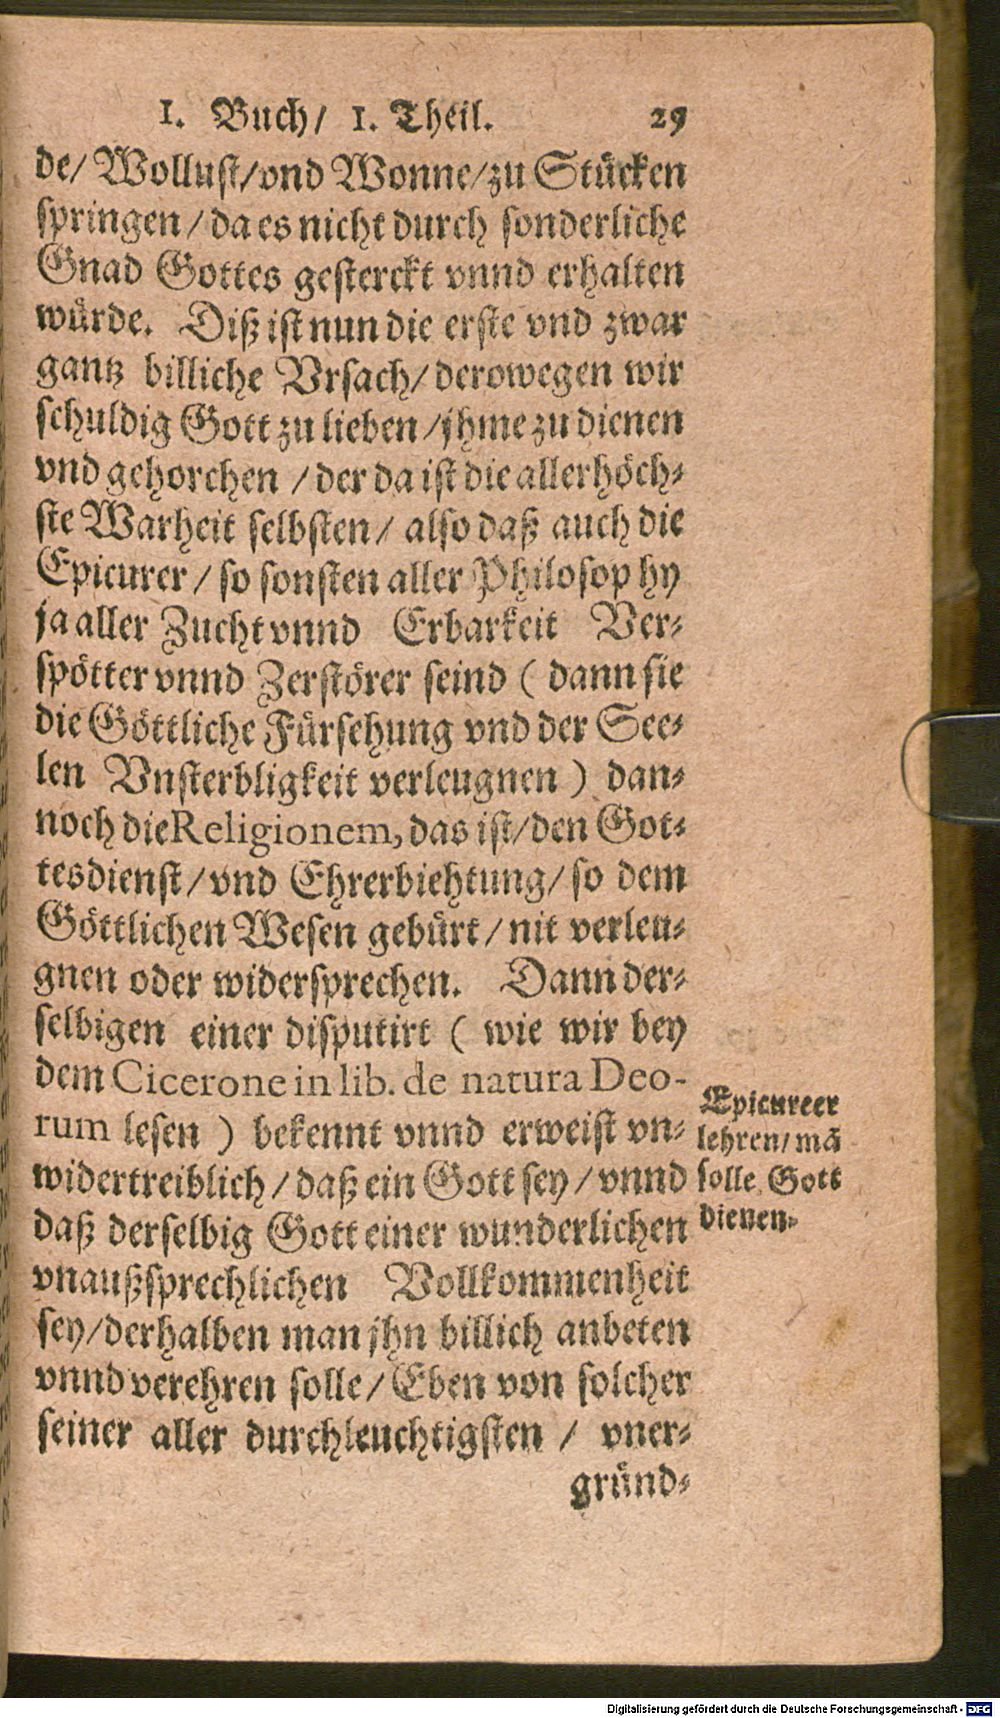 1. Buch/ 1. Theil. 29
de/ Wollust/vnd Wonne/zu Stücken
springen/da es nicht durch sonderliche
Gnad Gottes gesterckt vnnd erhalten
würde. Diß ist nun die erste vnd zwar
gantz billiche Vrsach/derowegen wir
schuldig Gott zu lieben/jhme zu dienen
vnd gehorchen/der da ist die allerhöch-
ste Warheit selbsten/ also daß auch die
Epicurer/so sonsten aller Philosophy
ja aller Zucht vnnd Erbarkeit Ver-
spötter vnnd Zerstörer seind (dann sie
die Göttliche Fürsehung vnd der See-
len Vnsterbligkeit verleugnen) dan-
noch die Religionem, das ist/den Got-
tesdienst/vnd Ehrerbiehtung/so dem
Göttlichen Wesen gebürt/nit verleu-
gnen oder widersprechen. Dann der-
selbigen einer disputirt (wie wir bey
dem Cicerone in lib. de natura Deo-
rum lesen) bekennt vnnd erweist vn-
widertreiblich/daß ein Gott sey/vnnd
daß derselbig Gott einer wunderlichen
vnaußsprechlichen Vollkommenheit
sey/derhalben man jhn billich anbeten
vnnd verehren solle/Eben von solcher
seiner aller durchleuchtigsten/ vner-
gründ-
Epicureer
lehren/mã
solle Gott
dienen.
Digitalisierung gefördert durch die Deutsche Forschungsgemeinschaft - DFG